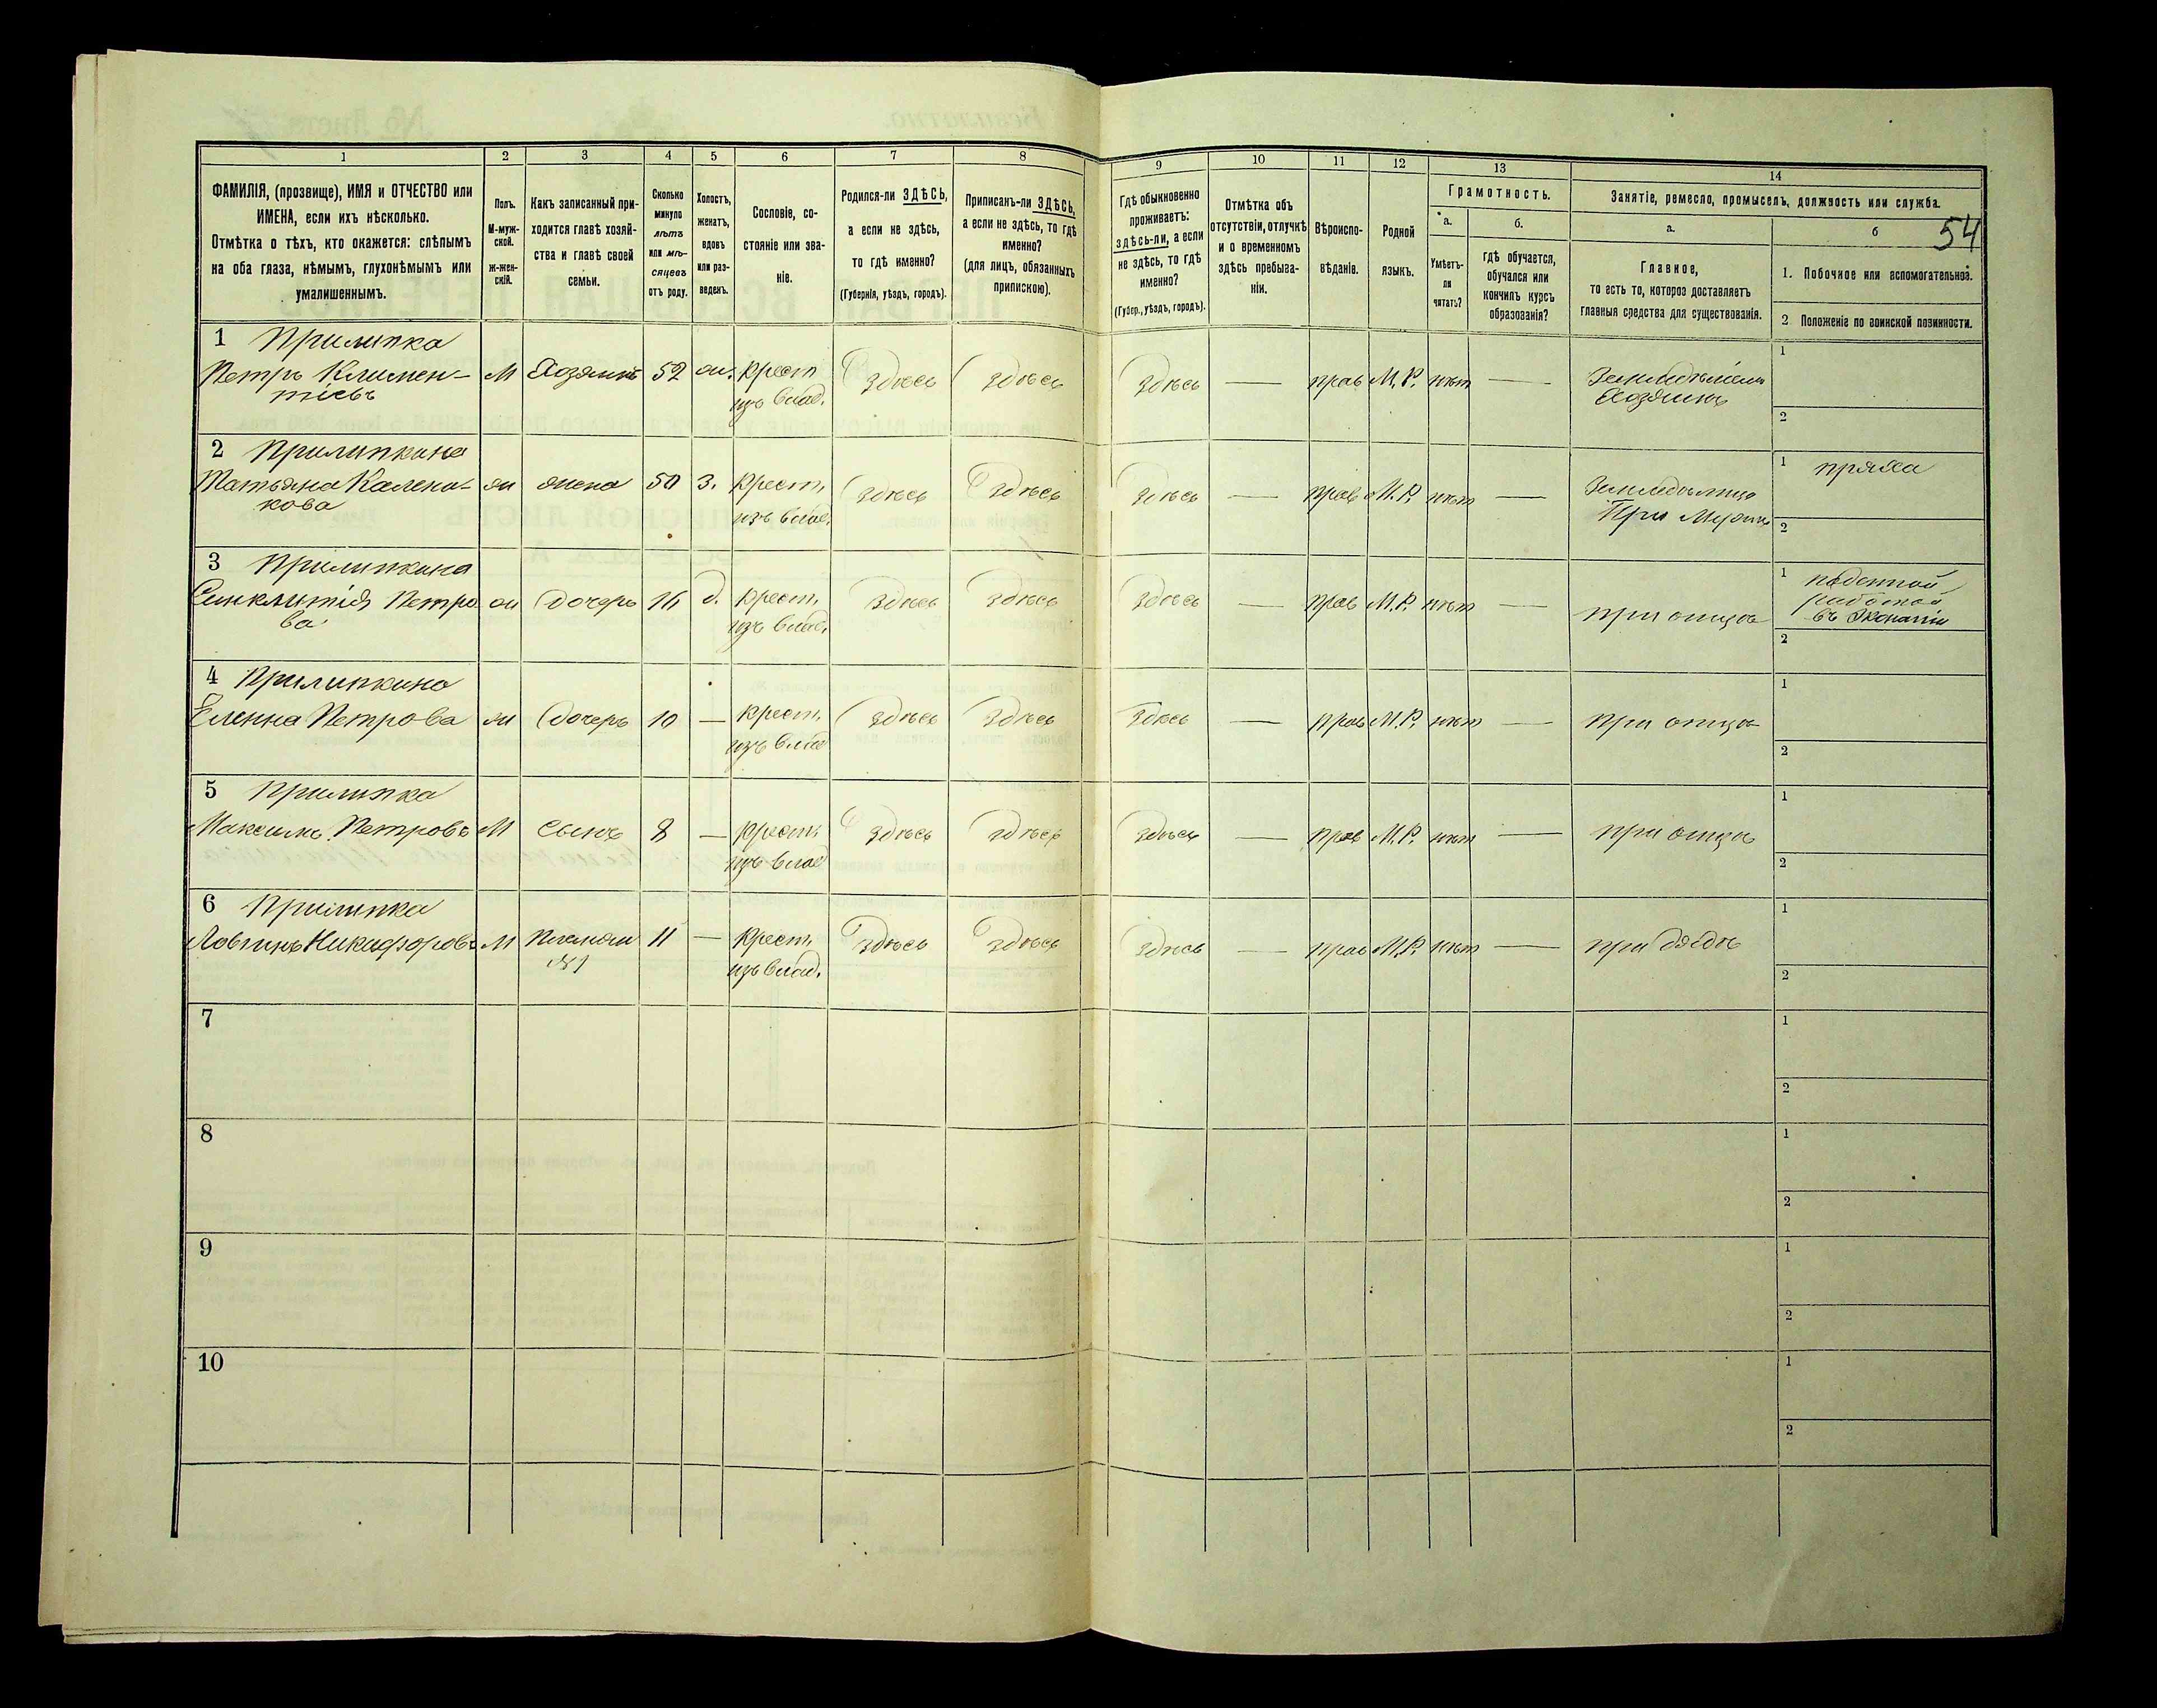 1 2 3 4 5 6 7 8 9 10 11 12 13 14
ФАМИЛІЯ, (прозвище), ИМЯ и ОТЧЕСТВО или
ИМЕНА, если ихъ нѣсколько.
Отмѣтка о тѣхъ, кто окажется: слѣпымъ
на оба глаза, нѣмымъ, глухонѣмымъ или
умалишеннымъ.
Полъ.
М-муж-
ской.
ж-жен-
скій.
Какъ записанный при-
ходится главѣ хозяй-
ства и главѣ своей
семьи.
Сколько
минуло
лѣтъ
или мѣ-
сяцевъ
отъ роду.
Холостъ,
женатъ,
вдовъ
или раз-
веденъ.
Сословіе, со-
стояніе или зва-
ніе.
Родился-ли ЗДѢСЬ,
а если не здѣсь,
то гдѣ именно?
(Губернія, уѣздъ, городъ).
Приписанъ-ли ЗДѢСЬ,
а если не здѣсь, то гдѣ
именно?
(для лицъ, обязанныхъ
припискою).
Гдѣ обыкновенно
проживаетъ:
здѣсь-ли, а если
не здѣсь, то гдѣ
именно?
(Губер., уѣздъ, городъ).
Отмѣтка объ
отсутствіи, отлучкѣ
и о временномъ
здѣсь пребыва-
ніи.
Вѣроиспо-
вѣданіе.
Родной
языкъ.
Грамотность.
а.
Умѣетъ-
ли
читать?
б.
гдѣ обучается,
обучался или
кончилъ курсъ
образованія?
Занятіе, ремесло, промыселъ, должность или служба.
54
а.
Главное,
то есть то, которое доставляетъ
главныя средства для существованія.
б
1. Побочное или вспомогательное.
2 Положеніе по воинской повинности.
1 Прилипка
Петръ Климен-
тіевъ
М Хозяинъ 52 ж. крест
изъ влад.
здѣсь здѣсь здѣсь — прав М.Р. нѣт —
Хозяинъ
1
2
2 Прилипкина
Татьяна
кова
ж жена 50 з. крест.
изъ влад.
здѣсь здѣсь здѣсь — прав М.Р. нѣт —
При
1 пряха
2
3 Прилипкина
Синклитія Петро
ва
ж дочерь 16 д. крест.
изъ влад.
здѣсь здѣсь здѣсь — прав М.Р. нѣт — при отцѣ
1 поденной
работой
въ Экономіи
2
4 Прилипкина
Еленна Петрова
ж дочерь 10 — крест.
изъ влад
здѣсь здѣсь здѣсь — прав М.Р. нѣт — при отцѣ
1
2
5 Прилипка
Максимъ Петровъ
М сынъ 8 — крест.
изъ влад
здѣсь здѣсь здѣсь — прав М.Р. нѣт — при отцѣ
1
2
6 Прилипка
Логинъ Никифоровъ
М племян
№1
11 — крест.
изъ влад.
здѣсь здѣсь здѣсь — прав М.Р. нѣт — при дядѣ
1
2
7
1
2
8
1
2
9
1
2
10
1
2